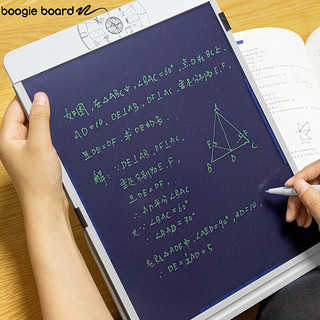 boogie board
如图,在△ABC中,∠BAC=60°,点D在BC上,
AD=10,DE⊥AB,DF⊥AC,垂足分别为E,F,
且DE=DF,求DE的长.
解:∵DE⊥AB,DF⊥AC,
垂足分别为E,F,
且DE=DF,
∴AD平分∠BAC
又∵∠BAC=60°
∴∠BAD=30°
在Rt△ADE中,∠AED=90°,AD=10,
∴DE=½AD=5
A
E
F
B
D
C